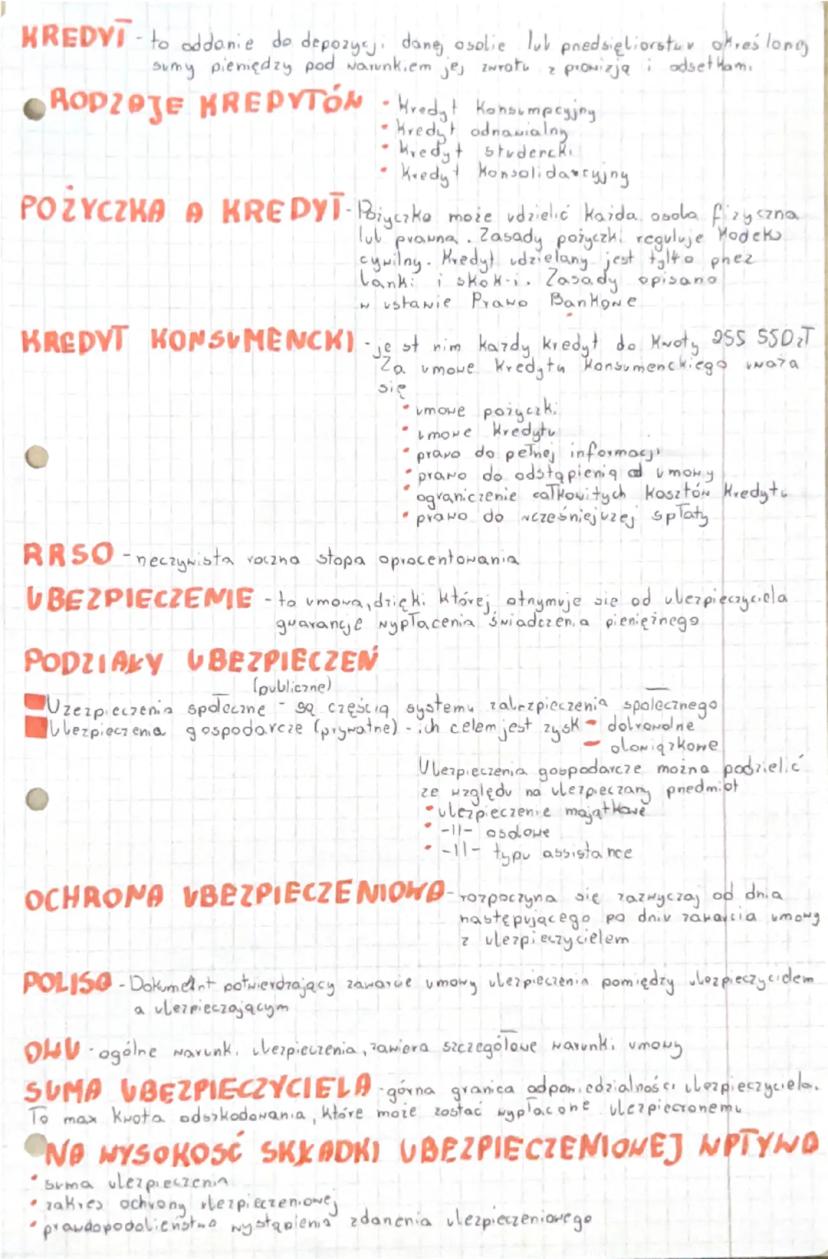 KREDYT - to oddanie do depozycji danej osobie lub przedsiębiorstwu określonej
sumy pieniędzy pod warunkiem jej zwrotu z prowizją i odsetkami.
RODZAJE KREDYTÓW • Kredyt Konsumpcyjny
• Kredyt odnawialny
• Kredyt studencki
• Kredyt Konsolidarcyjny
POŻYCZKA A KREDYT - Pożyczka może udzielić każda osoba fizyczna
lub prawna. Zasady pożyczki reguluje Kodeks
cywilny. Kredyt udzielany jest tylko przez
banki i skok-i. Zasady opisano
w ustawie Prawo Bankowe
KREDYT KONSUMENCKI - jest nim każdy kredyt do kwoty 255 550zł
Za umowe Kredytu Konsumenckiego uważa
się
• umowe pożyczki
• umowe kredytu
• prawo do pełnej informacji
• prawo do odstąpienia od umowy
• ograniczenie całkowitych kosztów Kredytu
• prawo do wcześniejszej spłaty
RRSO - rzeczywista roczna stopa oprocentowania
UBEZPIECZENIE - to umowa, dzięki której otrzymuje się od ubezpieczyciela
gwarancje wypłacenia świadczenia pieniężnego
PODZIAŁY UBEZPIECZEŃ
(publiczne)
Uzezpieczenia społeczne - są częścią systemu zabezpieczenia społecznego
Ubezpieczenia gospodarcze (prywatne) - ich celem jest zysk - dobrowolne
- obowiązkowe
Ubezpieczenia gospodarcze można podzielić
ze względu na ubezpieczany przedmiot
• ubezpieczenie majątkowe
• -||- osobowe
• -||- typu assistance
OCHRONA UBEZPIECZENIOWA - rozpoczyna się zazwyczaj od dnia
następującego po dniu zawarcia umowy
z ubezpieczycielem
POLISA - Dokument potwierdzający zawarcie umowy ubezpieczenia pomiędzy ubezpieczycielem
a ubezpieczającym
OWU - ogólne warunki ubezpieczenia, zawiera szczegółowe warunki umowy
SUMA UBEZPIECZYCIELA - górna granica odpowiedzialności ubezpieczyciela.
To max kwota odszkodowania, które może zostać wypłacone ubezpieczonemu
NA WYSOKOŚĆ SKŁADKI UBEZPIECZENIOWEJ WPŁYWA
• suma ubezpieczenia
• zakres ochrony ubezpieczeniowej
• prawdopodobieństwo wystąpienia zdarzenia ubezpieczeniowego